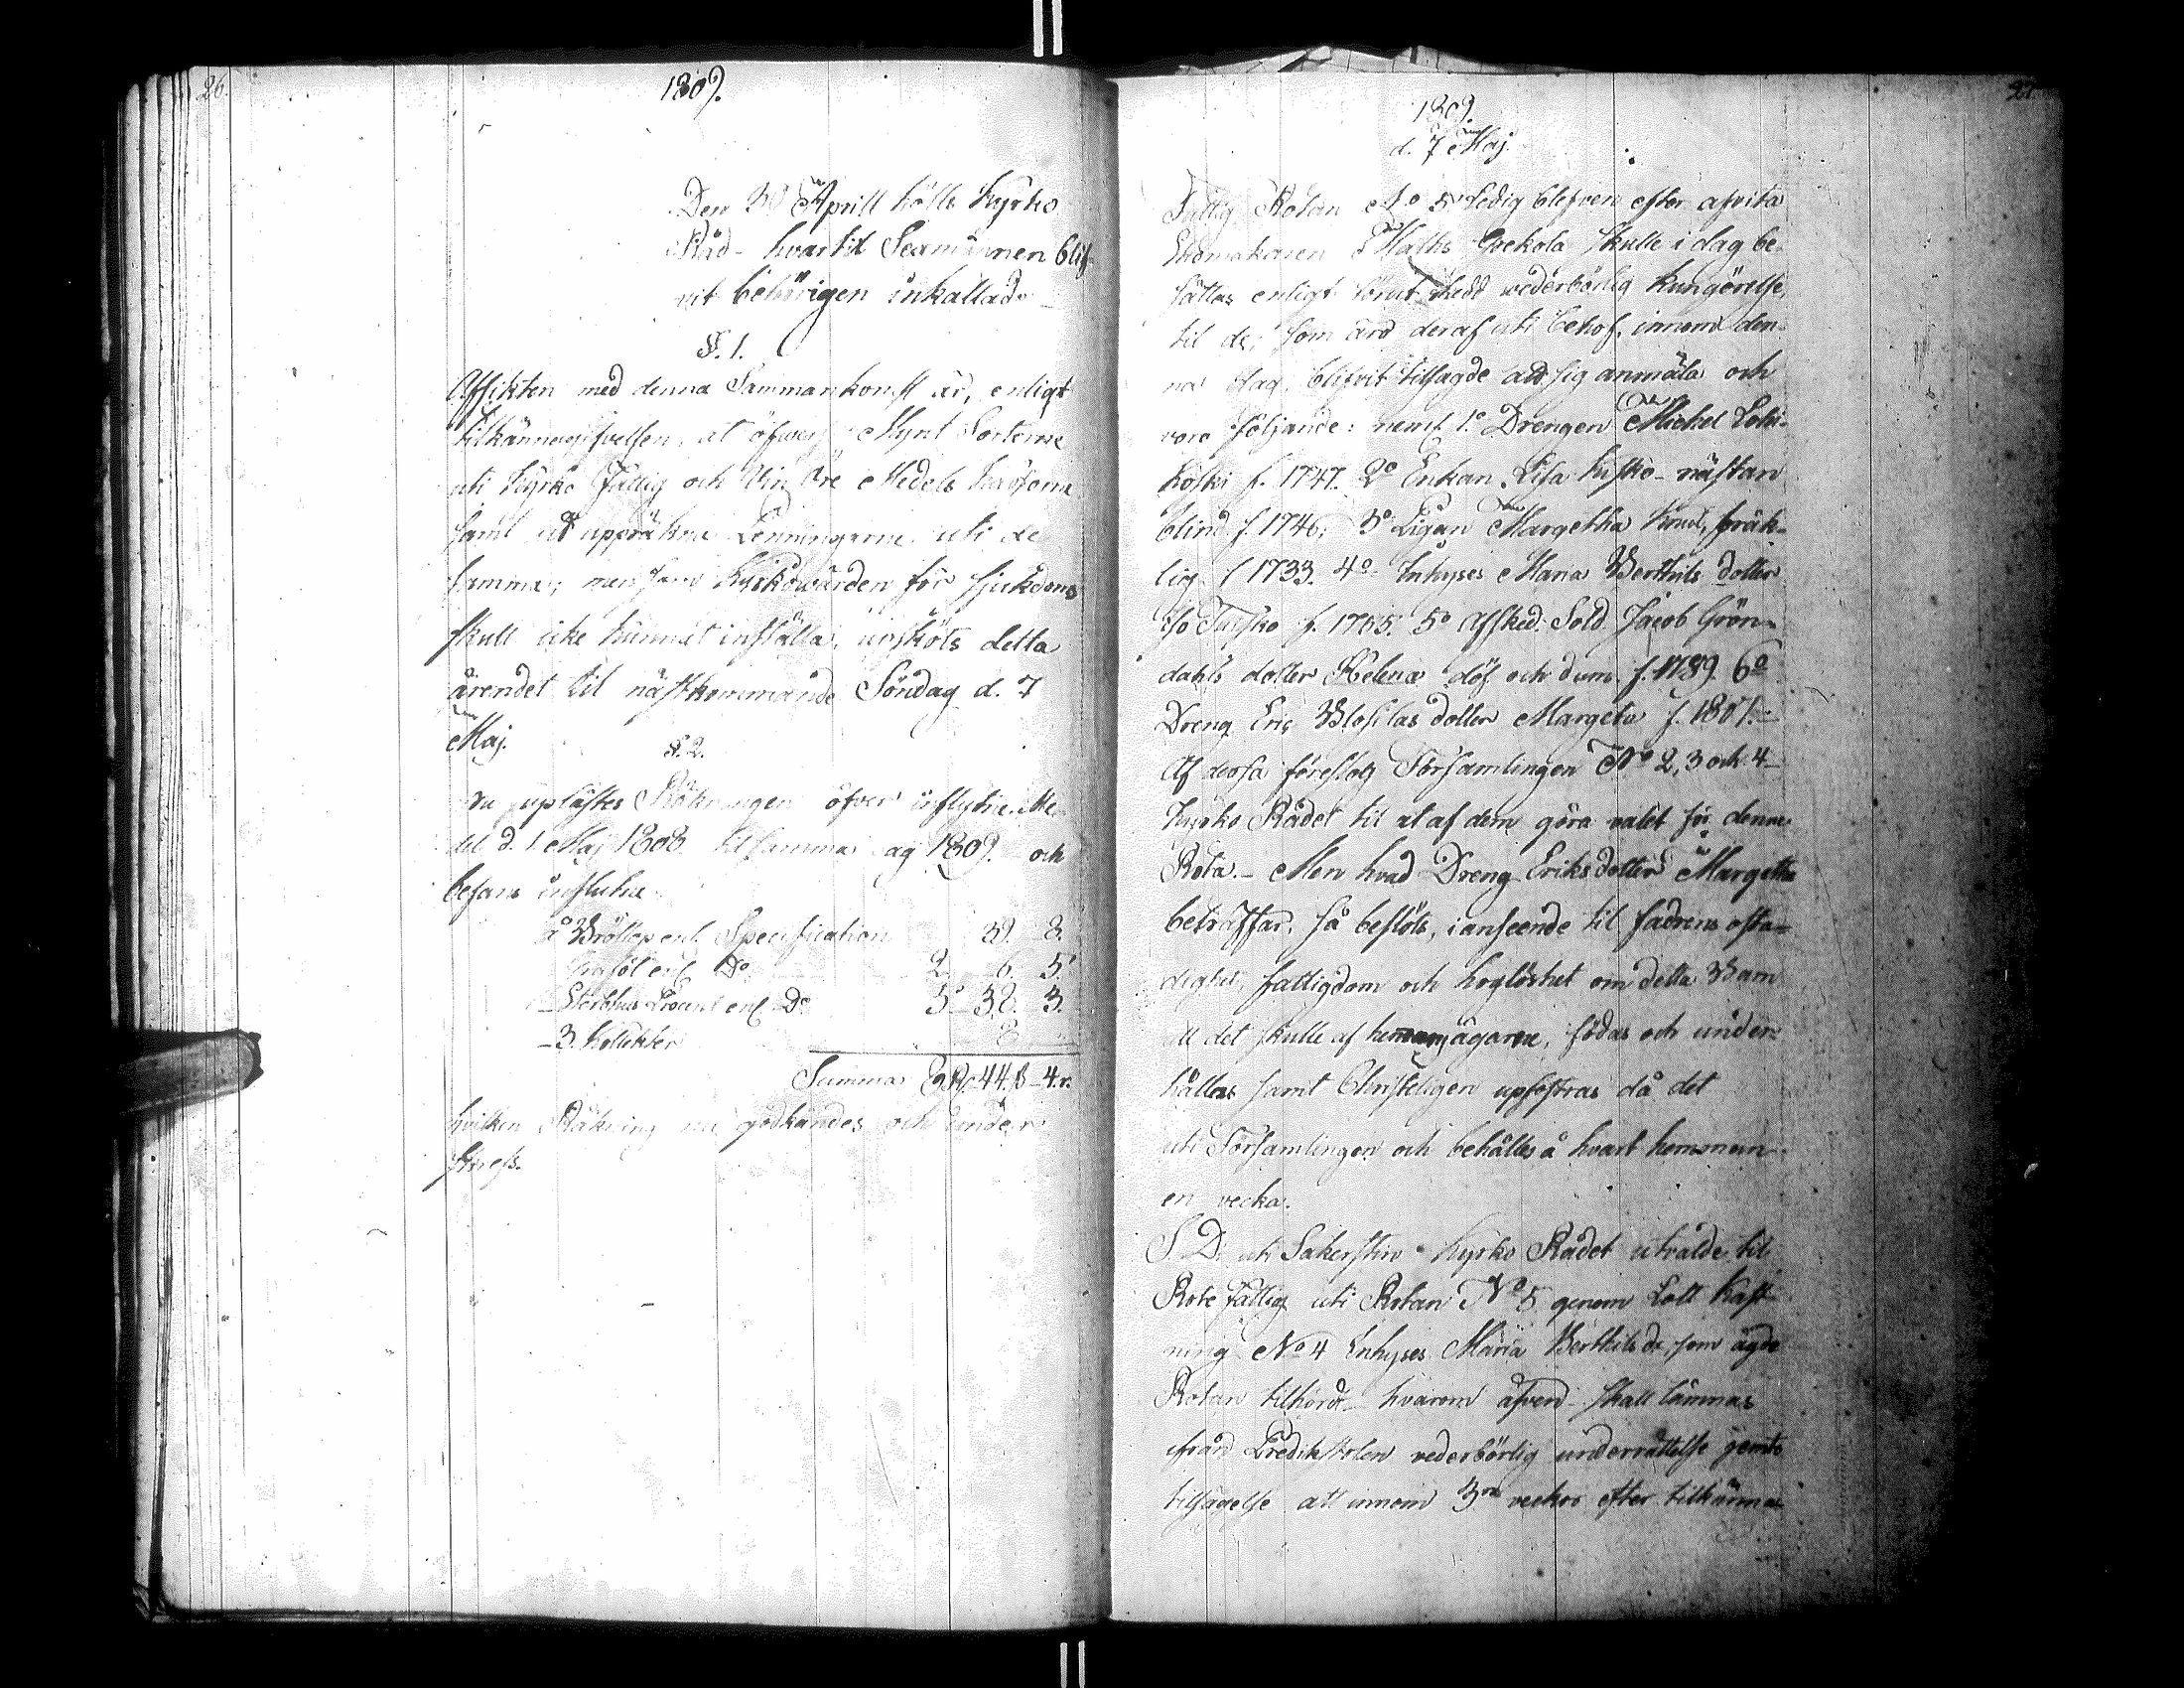 26.
1809.
Den 30 Aprill hölls Kyrko
Råd - hvartil Sexmännen blif-
vit behörigen inkallade
§. 1.
Afsikten med denna Sammankomst är, enligt
tilkännagifvelsen, at öfwer Mynt Sorterne
uti Kyrko Fattig och Vin Öre Medels Kassorne
samt at uppräkna Penningarne uti de
samma; men som Kyrkowärden för sjukdoms
skull icke kunnat inställa, upsköts detta
ärendet til nästkommande Söndag d. 7
Maj.
§. 2.
Nu uplästes Räkningen öfver influtne Me-
del d. 1. Maj 1808 til samma dag 1809. och
befans influtne
å Bröllop enl. Specification 39. 8.
Grafsöl enl. Do 2. 6. 5.
- Sterbhus Procent enl. Do 5. 38. 3.
- 3. Kollekter 8
Summa 44.ß - 4.r.
hvilken Räkning nu godkändes och under
skrefs.
27.
1809.
d. 7 Maj.
Fattig Rotan No 5 ledig blefven efter afvita
Matts Grekola skulle i dag be-
sättas enligt förut skedd wederbörlig kungörelse,
til de, som äro deraf uti behof, innom den-
na dag blifvit tilsagde att sig anmäla och
voro följande: neml. 1o Drengen Michel
koski f. 1747. 2o Enkan Lisa Kisko - nästan
blind f. 1746; 3o Pigan Margetha bräck-
lig f 1733. 4o Inhyses Maria Berthils dotter
f. 1765. 5o Afsked. Sold. Jacob Grön-
dahls dotter Helena döf och dum f. 1789. 6o
Dreng Eric dotter Margeta f. 1801.
Af dessa föreslog Församlingen No 2, 3 och 4
Kyrko Rådet til at af dem göra valet för denna
Rota. - Men hvad Dreng Eriks dotter Margetha
beträffar, så beslöts, i anseende til fadrens osta-
dighet, fattigdom och hoglöshet om detta Barn
att det skulle af hemmansägarne, födas och under-
hållas samt Christeligen upfostras då det
uti Församlingen och behålles å hvart hemman
en vecka.
S. D. uti Sakerstian Kyrko Rådet utvalde til
Rote fattig uti Rotan No 5 genom Lott kast-
ning No 4 Inhyses Maria Berthils dr, som ägde
Rotan tilhörde - hvarom äfven skall lämnas
ifrån Predikstolen vederbörlig underrättelse jemte
tilsägelse att innom 3ne veckor efter tilkänna